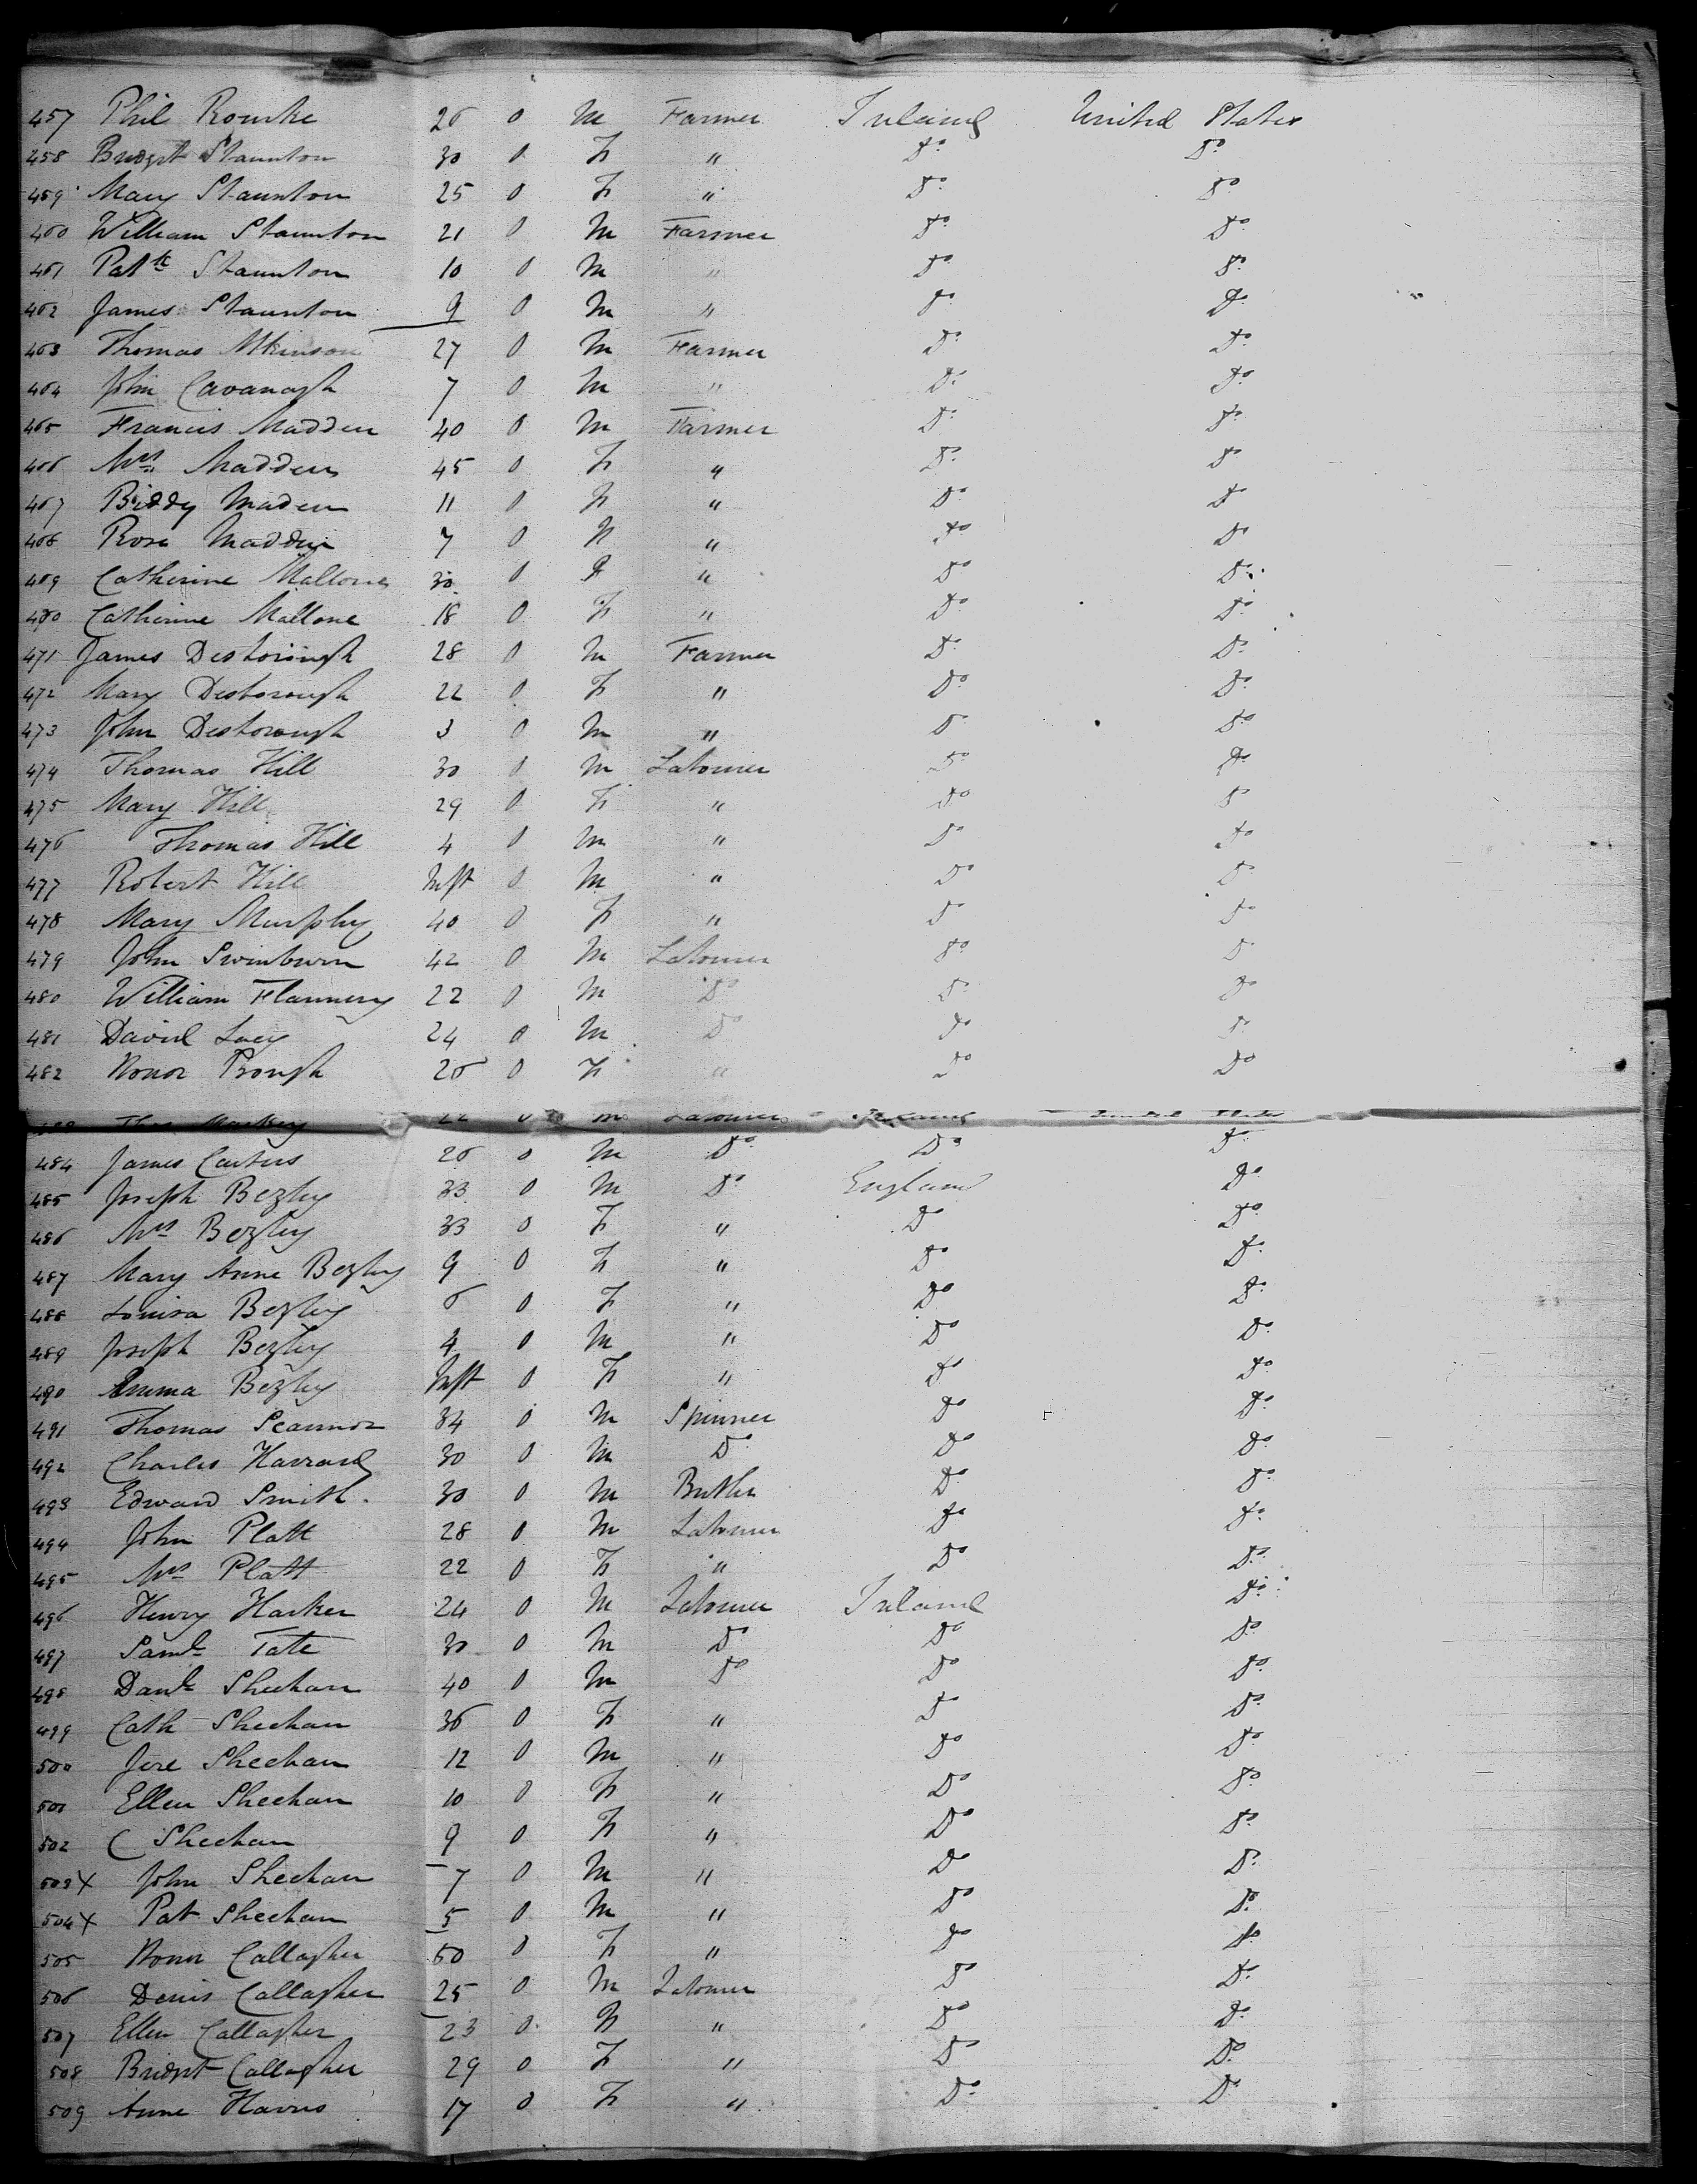 457 Phil Rourke 26 0 M Farmer Ireland United States
458 Bridgt Staunton 30 0 F " Do Do
459 Mary Staunton 25 0 F " Do Do
460 William Staunton 21 0 M Farmer Do Do
461 Patk Staunton 10 0 M " Do Do
462 James Staunton 9 0 M " Do Do
463 Thomas Atkinson 27 0 M Farmer Do Do
464 John Cavanagh 7 0 M " Do Do
465 Francis Madden 40 0 M Farmer Do Do
466 Mrs Madden 45 0 F " Do Do
467 Biddy Maden 11 0 F " Do Do
468 Rose Madden 7 0 F " Do Do
469 Catherine Mallone 30 0 F " Do Do
470 Catherine Mallone 18 0 F " Do Do
471 James Desborough 28 0 M Farmer Do Do
472 Mary Desborough 22 0 F " Do Do
473 John Desborough 3 0 M " Do Do
474 Thomas Hill 30 0 M Labourer Do Do
475 Mary Hill 29 0 F " Do Do
476 Thomas Hill 4 0 M " Do Do
477 Robert Hill Inft 0 M " Do Do
478 Mary Murphy 40 0 F " Do Do
479 John Swinburn 42 0 M Labourer Do Do
480 William Flannery 22 0 M Do Do Do
481 David Lacy 24 0 M Do Do Do
482 Honor Brough 26 0 F " Do Do
22 0 M Labourer Ireland United States
484 James Carters 26 0 M Do Do Do
485 Joseph Bezley 33 0 M Do England Do
486 Mrs Bezley 33 0 F " Do Do
487 Mary Anne Bezley 9 0 F " Do Do
488 Louisa Bezley 6 0 F " Do Do
489 Joseph Bezley 4 0 M " Do Do
490 Emma Bezley Inft 0 F " Do Do
491 Thomas Scannor 34 0 M Spinner Do Do
492 Charles Harrard 30 0 M Do Do Do
493 Edward Smith. 30 0 M Butler Do Do
494 John Platt 28 0 M Labourer Do Do
495 Mrs Platt 22 0 F " Do Do
496 Henry Harker 24 0 M Labourer Ireland Do
497 Saml Tate 30 0 M Do Do Do
498 Danl Sheehan 40 0 M Do Do Do
499 Cath Sheehan 36 0 F " Do Do
500 Jere Sheehan 12 0 M " Do Do
501 Ellen Sheehan 10 0 F " Do Do
502 C Sheehan 9 0 F " Do Do
503 X John Sheehan 7 0 M " Do Do
504 X Pat Sheehan 5 0 M " Do Do
505 Honor Callagher 50 0 F " Do Do
506 Denis Callagher 25 0 M Labourer Do Do
507 Ellen Callagher 23 0 F " Do Do
508 Bridgt Callagher 29 0 F " Do Do
509 Anne Harris 17 0 F " Do Do